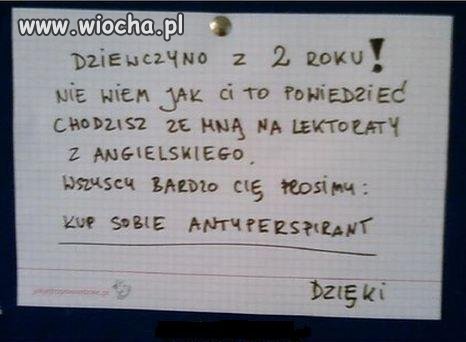 www.wiocha.pl
DZIEWCZYNO Z 2 ROKU!
NIE WIEM JAK CI TO POWIEDZIEĆ
CHODZISZ ZE MNĄ NA LEKTORATY
Z ANGIELSKIEGO.
WSZYSCY BARDZO CIĘ PROSIMY:
KUP SOBIE ANTYPERSPIRANT
DZIĘKI